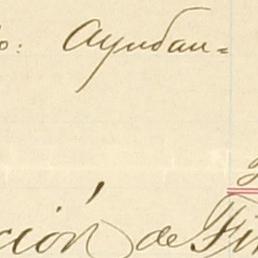 o: Ayudan=
ción de Fin